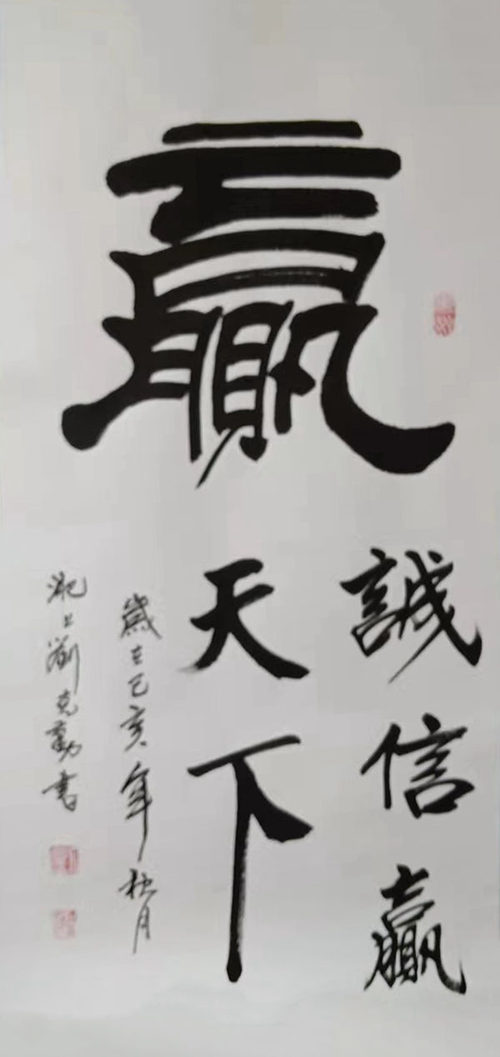 贏
誠信贏
天下
歲在己亥年秋月
淝上劉克勤書